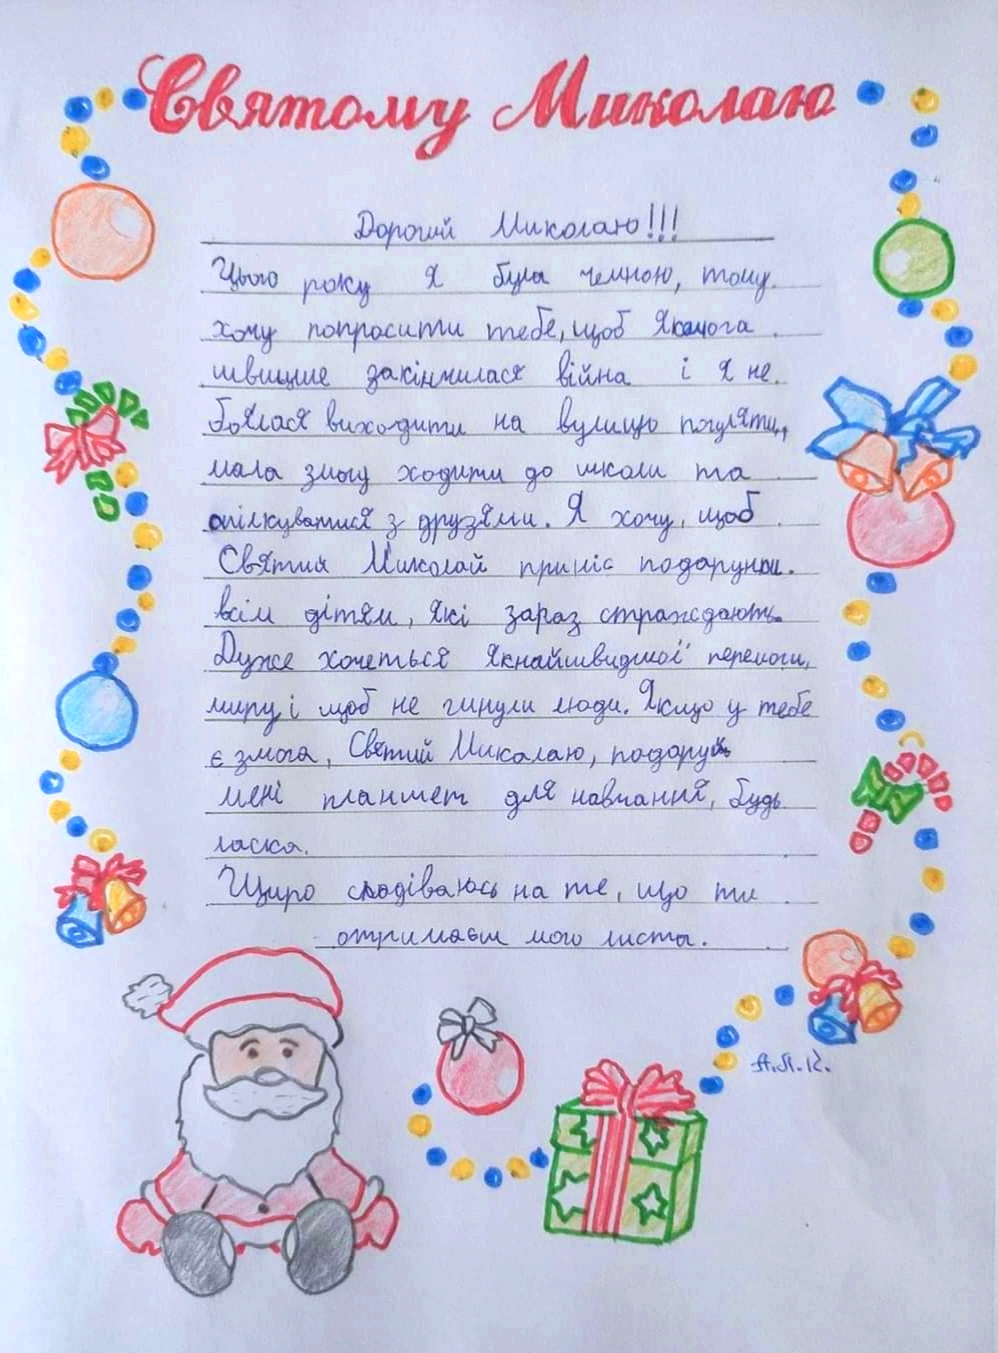 Святому Миколаю
Дорогий Миколаю!!!
Цього року я була чемною, тому
хочу попросити тебе, щоб якомога
швидше закінчилася війна і я не
боялася виходити на вулицю погуляти,
мала змогу ходити до школи та
спілкуватися з друзями. Я хочу, щоб
Святий Миколай приніс подарунки
всім дітям, які зараз страждають.
Дуже хочеться якнайшвидшої перемоги,
миру і щоб не гинули люди. Якщо у тебе
є змога, Святий Миколаю, подаруй
мені планшет для навчання, будь
ласка.
Щиро сподіваюсь на те, що ти
отримаєш мого листа.
А.Л.К.